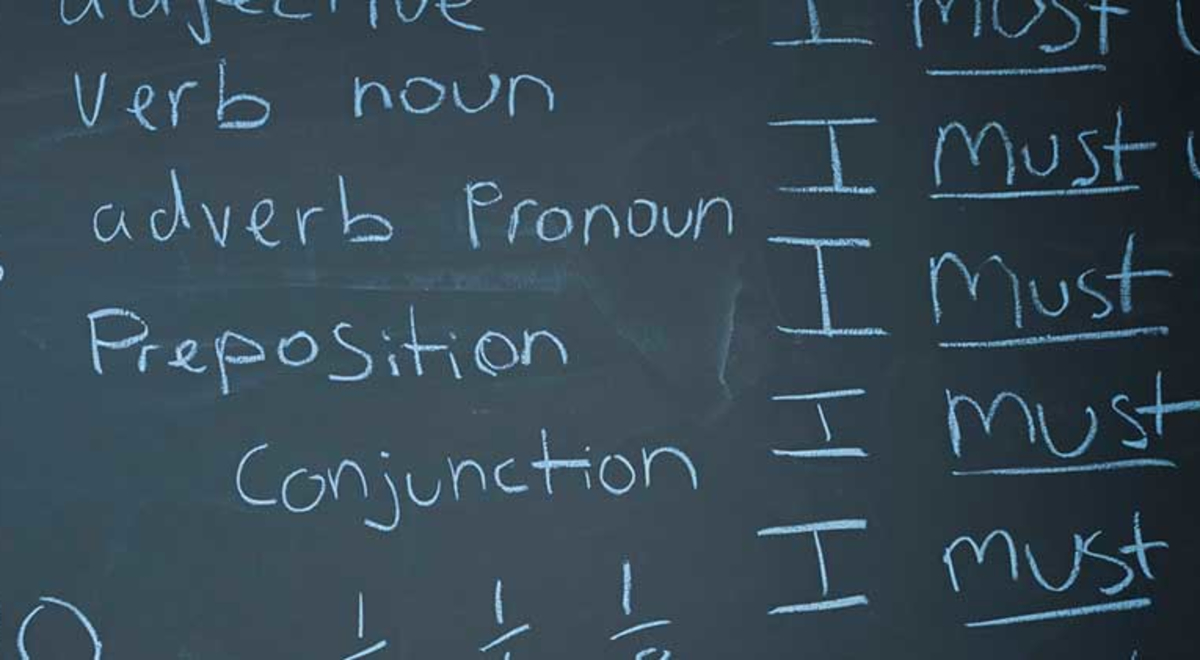 adjective
verb noun
adverb Pronoun
Preposition
Conjunction
I must
I must
I must
I must
I must